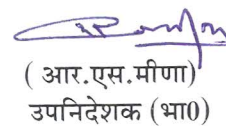 ( आर.एस.मीणा)
उपनिदेशक (भा0)